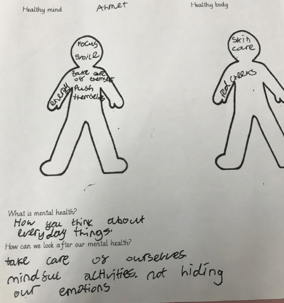 Healthy mind
Ahmet
Healthy body
Focus
take care
of themself
Push
themselves
energy
Skin
care
cheeks
What is mental health?
How you think about
everyday things.
How can we look after our mental health?
take care of ourselves
mindful activities. not hiding
our emotions